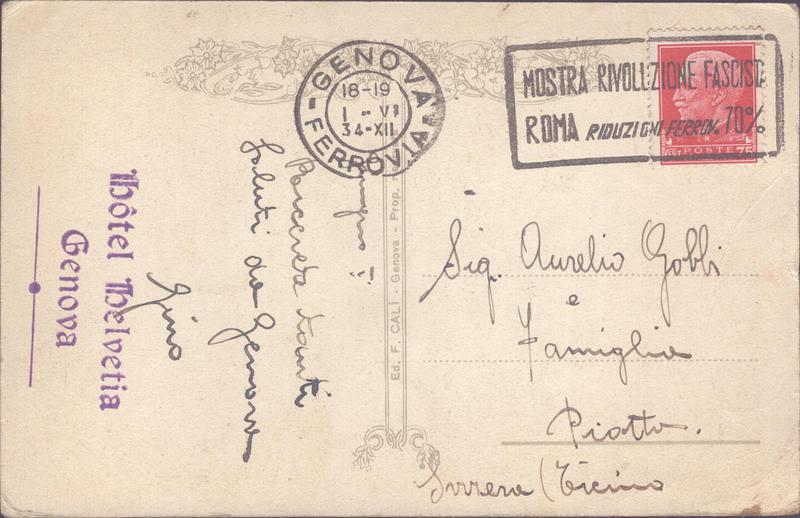 GENOVA
18-19
1-VI
34-XII
FERROVIA
MOSTRA RIVOLUZIONE FASCIST
ROMA RIDUZIONI FERROV. 70%
POSTE 75
Ricevete tanti
saluti da Genova
Gino
Hôtel Helvetia
Genova
Ed. F. CALÌ - Genova - Prop.
Sig. Aurelio Gobbi
e
Famiglia
Piotta.
Svizzera (Ticino